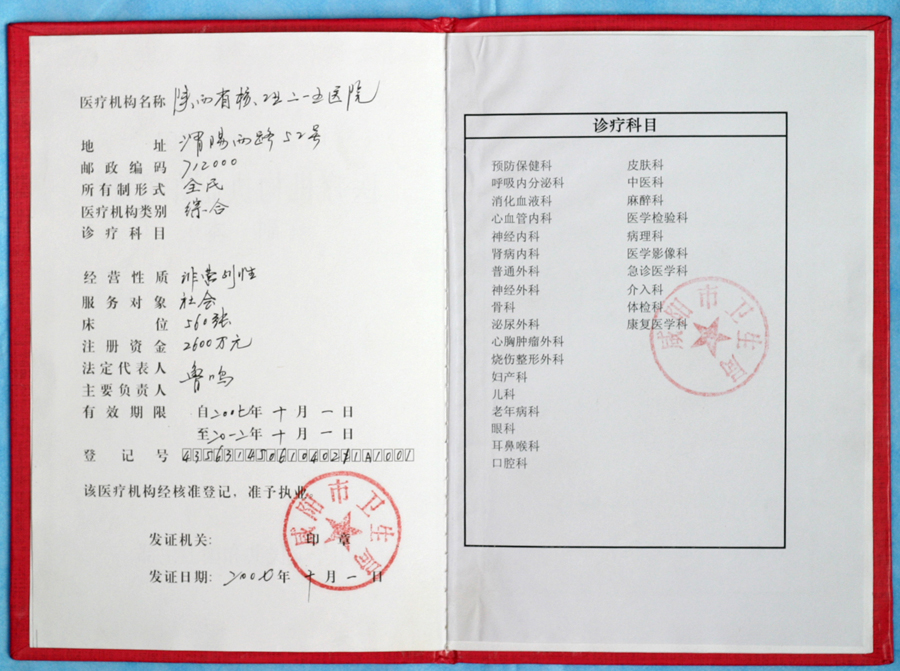 医疗机构名称 陕西省核工业二一五医院
地 址 渭阳西路52号
邮政编码 712000
所有制形式 全民
医疗机构类别 综合
诊疗科目
经营性质 非营利性
服务对象 社会
床 位 560张
注册资金 2600万元
法定代表人 鲁鸣
主要负责人
有效期限 自二00七年 十 月 一 日
至二0一二年 十 月 一 日
登记号
该医疗机构经核准登记，准予执业
发证机关: 印 章
发证日期: 二00七年 十 月 一 日
咸阳市卫生局
诊疗科目
预防保健科
呼吸内分泌科
消化血液科
心血管内科
神经内科
肾病内科
普通外科
神经外科
骨科
泌尿外科
心胸肿瘤外科
烧伤整形外科
妇产科
儿科
老年病科
眼科
耳鼻喉科
口腔科
皮肤科
中医科
麻醉科
医学检验科
病理科
医学影像科
急诊医学科
介入科
体检科
康复医学科
咸阳市卫生局